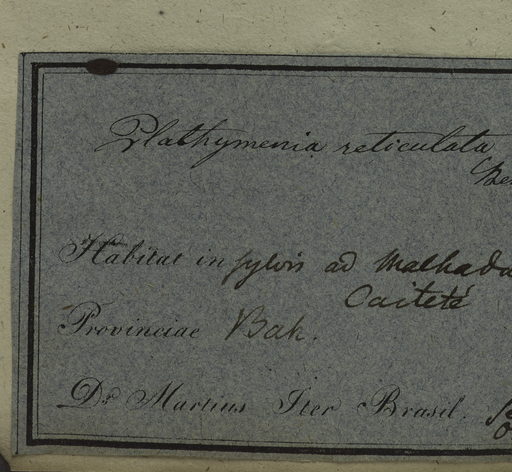 Plathymenia reticulata
Habitat in sylvis ad Malhada
Caiteté
Provinciae Bah.
Dr Martius Iter Brasil.